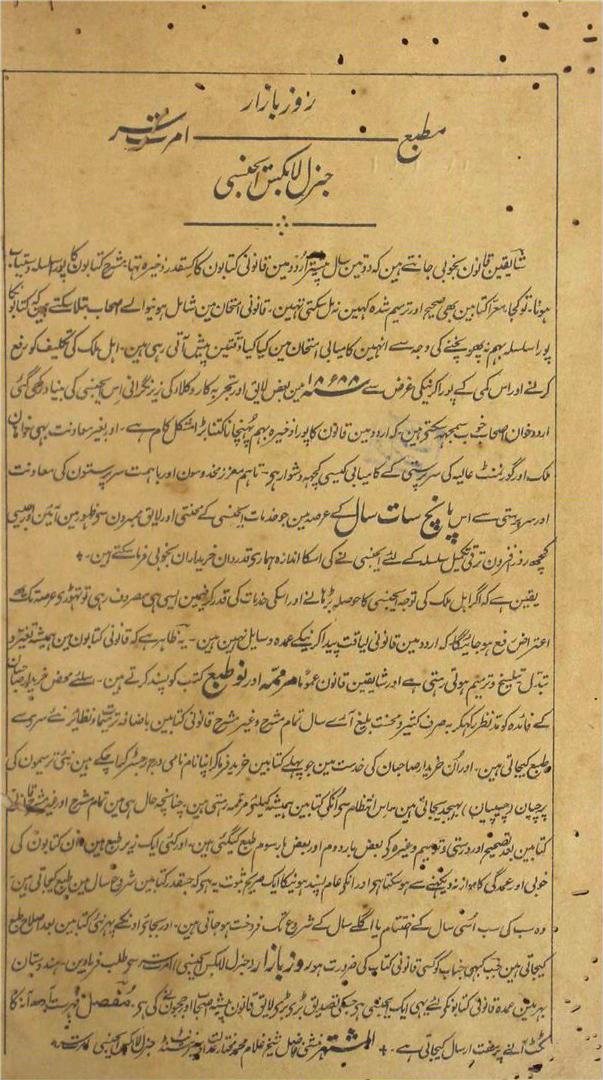 روز بازار
مطبع امرت سر
جنرل لا بکس ایجنسی
شایقین قانون بخوبی جانتے ہین کہ دو تین سال پیشتر اردو مین قانونی کتابون کا کسقدر ذخیرہ تہا۔ شرح کتابون کا پورا سلسلہ دستیاب
ہونا۔ تو کجا۔ معرا کتابین بھی صحیح اور ترمیم شدہ کہین نہ مل سکتی تہین۔ قانونی امتحان مین شامل ہونیوالے اصحاب بتلا سکتے ہین کہ کتابونکا
پورا سلسلہ بہم نہ پہونچنے کی وجہ سے انہین کامیابی امتحان مین کیا کیا دقتین پیش آتی رہی ہین۔ اہل ملک کی تکلیف کو رفع
کرنے اور اس کمی کے پورا کرنیکی غرض سے ۱۸۸ مین بعض لایق اور تجربہ کار وکلا کی زیر نگرانی اس ایجنسی کی بنیاد رکھی گئی
اردو خوان اصحاب خوب سمجہہ سکتے ہین کہ اردو مین قانون کا پورا ذخیرہ بہم پہنچانا کتنا بڑا مشکل کام ہے۔ اور بغیر معاونت بہی خواہان
ملک اور گورنمنٹ عالیہ کی سرپرستی کے کامیابی کیسی کچہہ دشوار ہے۔ تاہم معزز مخدومون اور باہمت سرپرستون کی معاونت
اور سرپرستی سے اس پانچ سات سال کے عرصہ مین جو خدمات ایجنسی کے محنتی اور لایق ممبرون سے ظہور مین آئین اور جیسی
کچھہ روز افزون ترقی تکمیل سلسلہ کے لئے ایجنسی نے کی اسکا اندازہ ہماری قدردان خریداران بخوبی فرما سکتے ہین۔
یقین ہے کہ اگر اہل ملک کی توجہ ایجنسی کا حوصلہ بڑہانے اور اسکی خدمات کی قدر کرنیمین ایسی ہی مصروف رہی تو تہوڑی عرصہ تک یہہ
اعتراض رفع ہو جائیگا کہ اردو مین قانونی لیاقت پیدا کرنیکے عمدہ وسایل نہین ہین۔ یہہ ظاہر ہے کہ قانونی کتابون مین ہمیشہ تغیر و
تبدل تنسیخ و ترمیم ہوتی رہتی ہے اور شایقین قانون عموماً مرممہ اور نو طبع کتب کو پسند کرتے ہین۔ اسلئے محض خریدار صاحبان
کے فائدہ کو مدنظر رکہکر بہ صرف کثیر و محنت بلیغ آئے سال تمام مشرح و غیر مشرح قانونی کتابین باضافہ ترمیمات و نظائر نئے سرے سے
طبع کیجاتی ہین۔ اور اُن خریدار صاحبان کی خدمت مین جو پہلے کتابین خرید فرما کر اپنا نام نامی درج رجسٹر کرا چکے ہین نئی ترمیمون کی
پرچیان (چیپیان) بہیجدیجاتی ہین۔ اس انتظام سے انکی کتابین ہمیشہ کیلئے مرممہ رہتی ہین۔ چنانچہ حال ہی مین تمام مشرح اور غیر مشرح قانونی
کتابین بعد تصحیح اور درستی و ترمیم وغیرہ کے بعض بار دوم اور بعض بار سوم طبع کیگئی ہین۔ اور کئی ایک زیر طبع ہین ان کتابون کی
خوبی اور عمدگی کا موازنہ دیکھنے سے ہو سکتا ہے اور انکی عام پسند ہونیکا ایک صریح ثبوت یہہ ہے کہ جسقدر کتابین شروع سال مین طبع کیجاتی ہین
وہ سب کی سب اسی سال کے اختتام یا اگلے سال کے شروع تک فروخت ہو جاتی ہین۔ اور بجائے اونکے پہر نئی کتابین بعد اصلاح طبع
کیجاتی ہین جب کبہی جناب کو کسی قانونی کتاب کی ضرورت ہو روز بازار جنرل لا بکس ایجنسی امرتسر سے طلب فرماوین۔ ہندوستان
بہر مین عمدہ قانونی کتابونکے لئے یہی ایک ایجنسی ہے جسکی تصدیق بڑی بڑی لایق قانون پیشہ اصحاب اور ججون نے کی ہے۔ مفصل فہرست آدھہ آنہ کا
ٹکٹ آنے پر مفت ارسال کیجاتی ہے۔ المشتہر منشی فاضل شیخ غلام محمد مختار عدالت جنرل لا بکس ایجنسی امرتسر